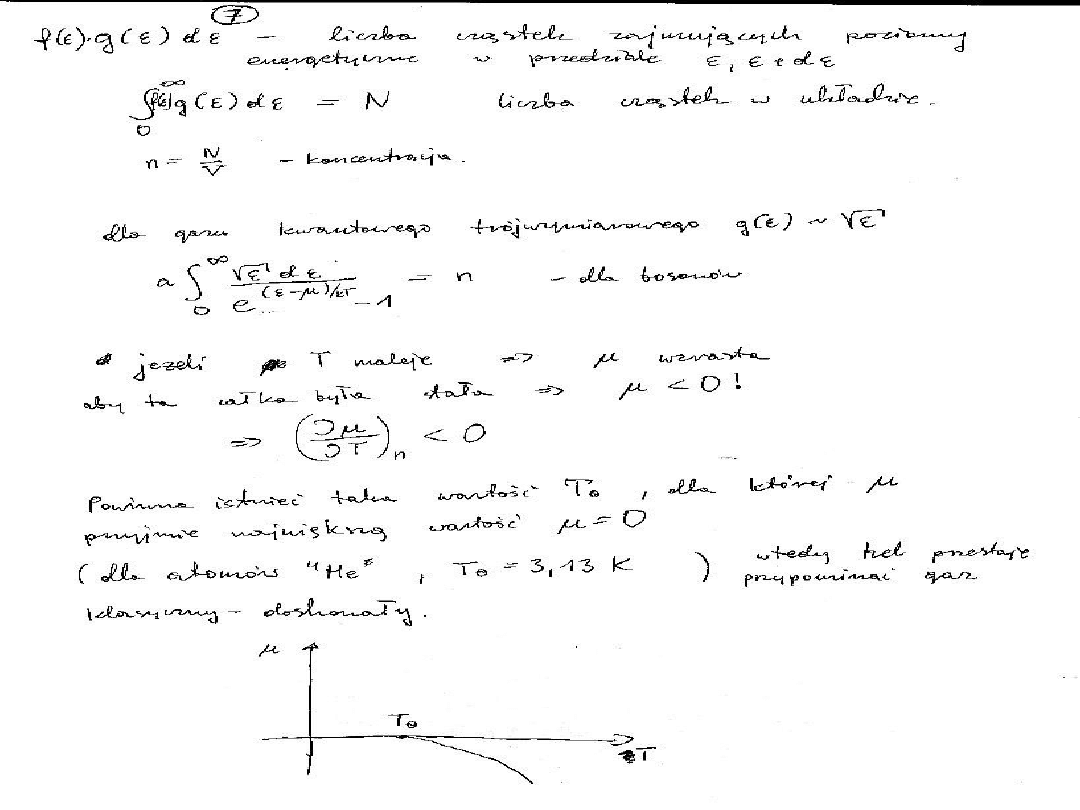 7
f(ε)·g(ε) dε – liczba cząstek zajmujących poziomy
energetyczne w przedziale ε, ε + dε
∫₀^∞ f(ε)g(ε) dε = N liczba cząstek w układzie.
n = N/V – koncentracja.
dla gazu kwantowego trójwymiarowego g(ε) ~ √ε
a ∫₀^∞ √ε dε / (e^((ε-μ)/kT) - 1) = n – dla bosonów
jeżeli T maleje => μ wzrasta
aby ta całka była stała => μ < 0!
=> (∂μ/∂T)ₙ < 0
Powinna istnieć taka wartość T₀, dla której μ
przyjmie największą wartość μ = 0
(dla atomów "He", T₀ = 3,13 K) wtedy hel przestaje
przypominać gaz
klasyczny – doskonały.
μ
T₀
T